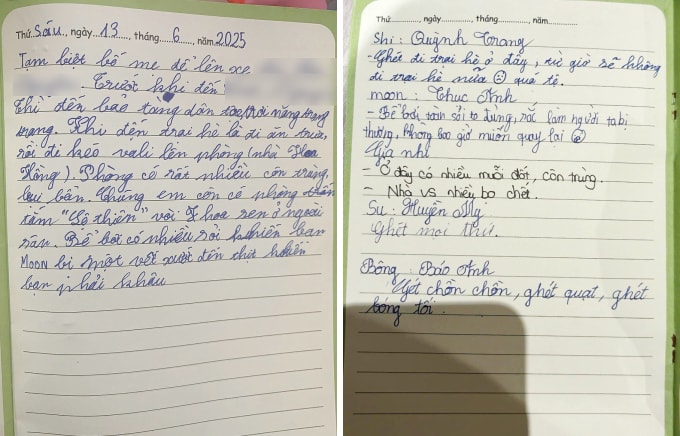 Thứ Sáu, ngày 13, tháng 6, năm 2025
Tạm biệt bố mẹ để lên xe
Trước khi đến
thì đến bảo tàng dân tộc, trời nắng trang
trang. Khi đến trại hè là đi ăn trưa,
rồi đi kéo vali lên phòng (nhà Hoa
Hồng). Phòng có rất nhiều côn trùng,
bụi bẩn. Chúng em còn có phòng
tắm "lộ thiên" với 1 hoa sen ở ngoài
sân. Bể bơi có nhiều sỏi khiến bạn
MOON bị một vết xướt đến thịt khiến
bạn phải khâu
Thứ, ngày, tháng, năm
Shi: Quỳnh Trang
- Ghét đi trại hè ở đây, từ giờ sẽ không
đi trại hè nữa quá tệ.
moon: Thục Anh
- Bể bơi toàn sỏi to đùng, rắc làm người ta bị
thương, không bao giờ muốn quay lại
Gia nhi
- Ở đây có nhiều muỗi đốt, côn trùng.
- Nhà vs nhiều bọ chết.
Su: Huyền My
Ghét mọi thứ.
Bông: Bảo Anh
Ghét chồn chồn, ghét quạt, ghét
bóng tối.